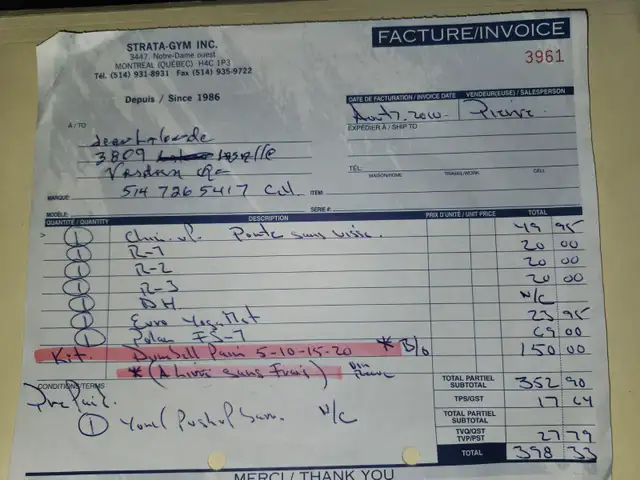 FACTURE/INVOICE
3961
STRATA-GYM INC.
3447, Notre-Dame ouest
MONTRÉAL (QUÉBEC) H4C 1P3
Tél. (514) 931-8931 Fax (514) 935-9722
Depuis / Since 1986
DATE DE FACTURATION / INVOICE DATE
VENDEUR(EUSE) / SALESPERSON
2010 Pierre
À / TO
EXPÉDIER À / SHIP TO
3809
Verdun Qc
514 726 5417 Cell
TÉL:
MAISON/HOME TRAVAIL/WORK CELL
MARQUE: ITEM:
MODÈLE: SÉRIE #:
QUANTITÉ / QUANTITY DESCRIPTION PRIX D'UNITÉ / UNIT PRICE TOTAL
1 Porte sans visse. 49 95
1 R-1 20 00
1 R-2 20 00
1 R-3 20 00
1 DH N/C
1 Euro Yoga Mat 23 95
1 Polar FS-1 69 00
Kit. Dumbell Pair 5-10-15-20 * B/o 150 00
* (A Livré sans Frais)
TOTAL PARTIEL SUBTOTAL 352 90
CONDITIONS/TERMS
Pre Paid.
TPS/GST 17 64
1 Pushup bars. N/C
TOTAL PARTIEL SUBTOTAL
TVQ/QST TVP/PST 27 79
TOTAL 398 33
MERCI / THANK YOU